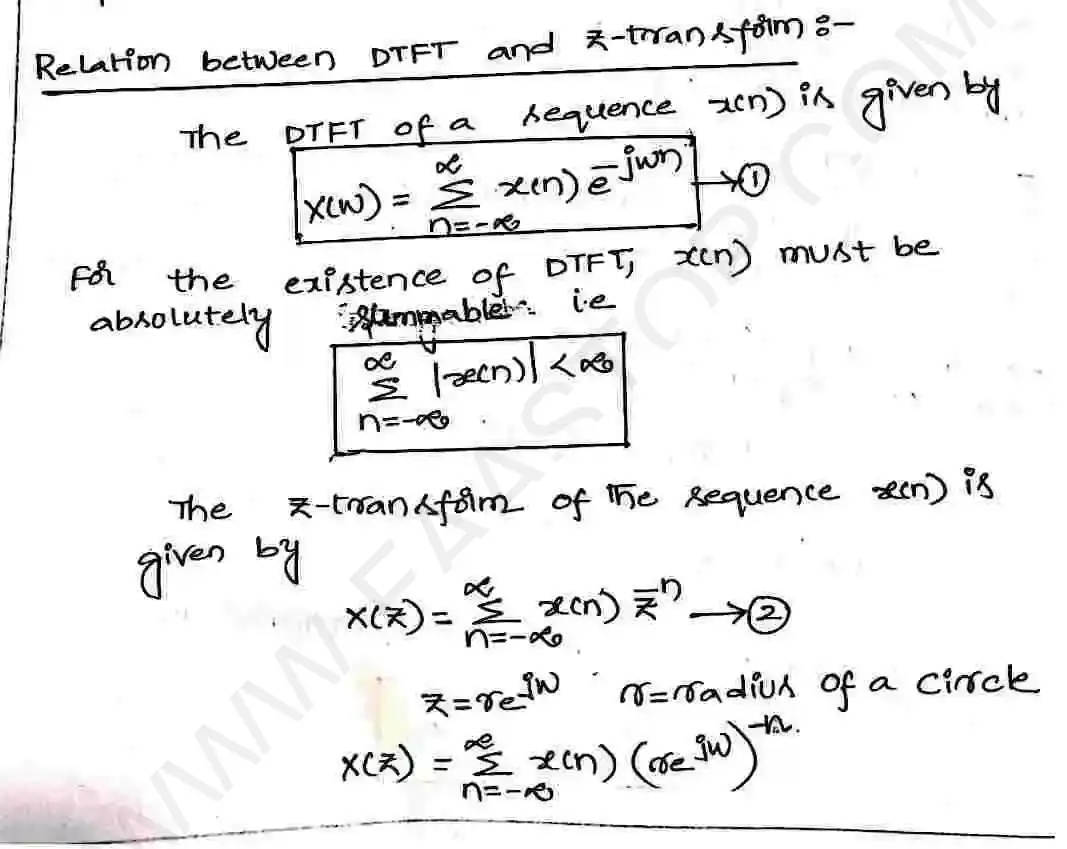 Relation between DTFT and z-transform :-
The DTFT of a sequence x(n) is given by
X(w) = ∑_{n=-∞}^{∞} x(n) e^{-jwn} → ①
For the existence of DTFT, x(n) must be
absolutely summable i.e
∑_{n=-∞}^{∞} |x(n)| < ∞
The z-transform of the sequence x(n) is
given by
X(z) = ∑_{n=-∞}^{∞} x(n) z^{-n} → ②
z = re^{jw} r = radius of a circle
X(z) = ∑_{n=-∞}^{∞} x(n) (re^{jw})^{-n}.